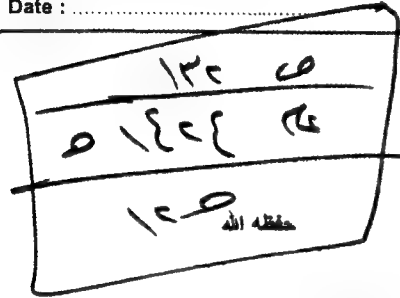 Date : ........................................
ص ١٣٢
عام ١٤٢٤ هـ
حفظه الله